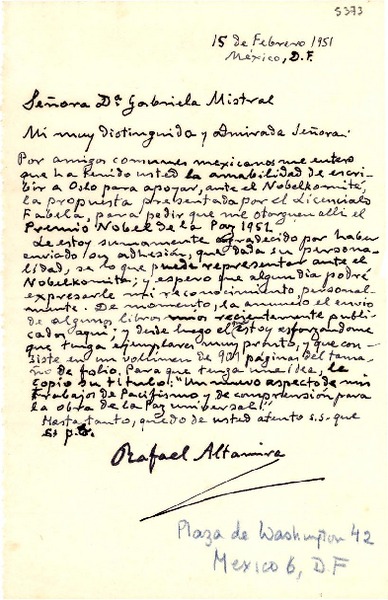 5373
15 de Febrero 1951
México, D.F.
Señora Dª Gabriela Mistral
Mi muy distinguida y Admirada Señora:
Por amigos comunes mexicanos me entero
que ha tenido usted la amabilidad de escri-
bir a Oslo para apoyar, ante el Nobelkomité,
la propuesta presentada por el Licenciado
Fabela, para pedir que me otorguen allí el
Premio Nobel de la Paz 1951.
Le estoy sumamente agradecido por haber
enviado su adhesión, que dada su perso-
nalidad, se lo que puede representar ante el
Nobelkomité; y espero que algun dia podré
expresarle mi reconocimiento personal-
mente. De momento, la anuncio el envio
de algunos libros mios recientemente publi-
cados aquí; y desde luego estoy esforzandome
que tenga ejemplares muy pronto, y que con-
siste en un volumen de 901 páginas del tama-
ño de folio. Para que tenga una idea, le
copio su título: "Un nuevo aspecto de mis
trabajos de Pacifismo y de comprensión para
la obra de la Paz universal".
Hasta tanto, quedo de usted atento s.s. que
Rafael Altamira
Plaza de Washington 42
Mexico 6, D F